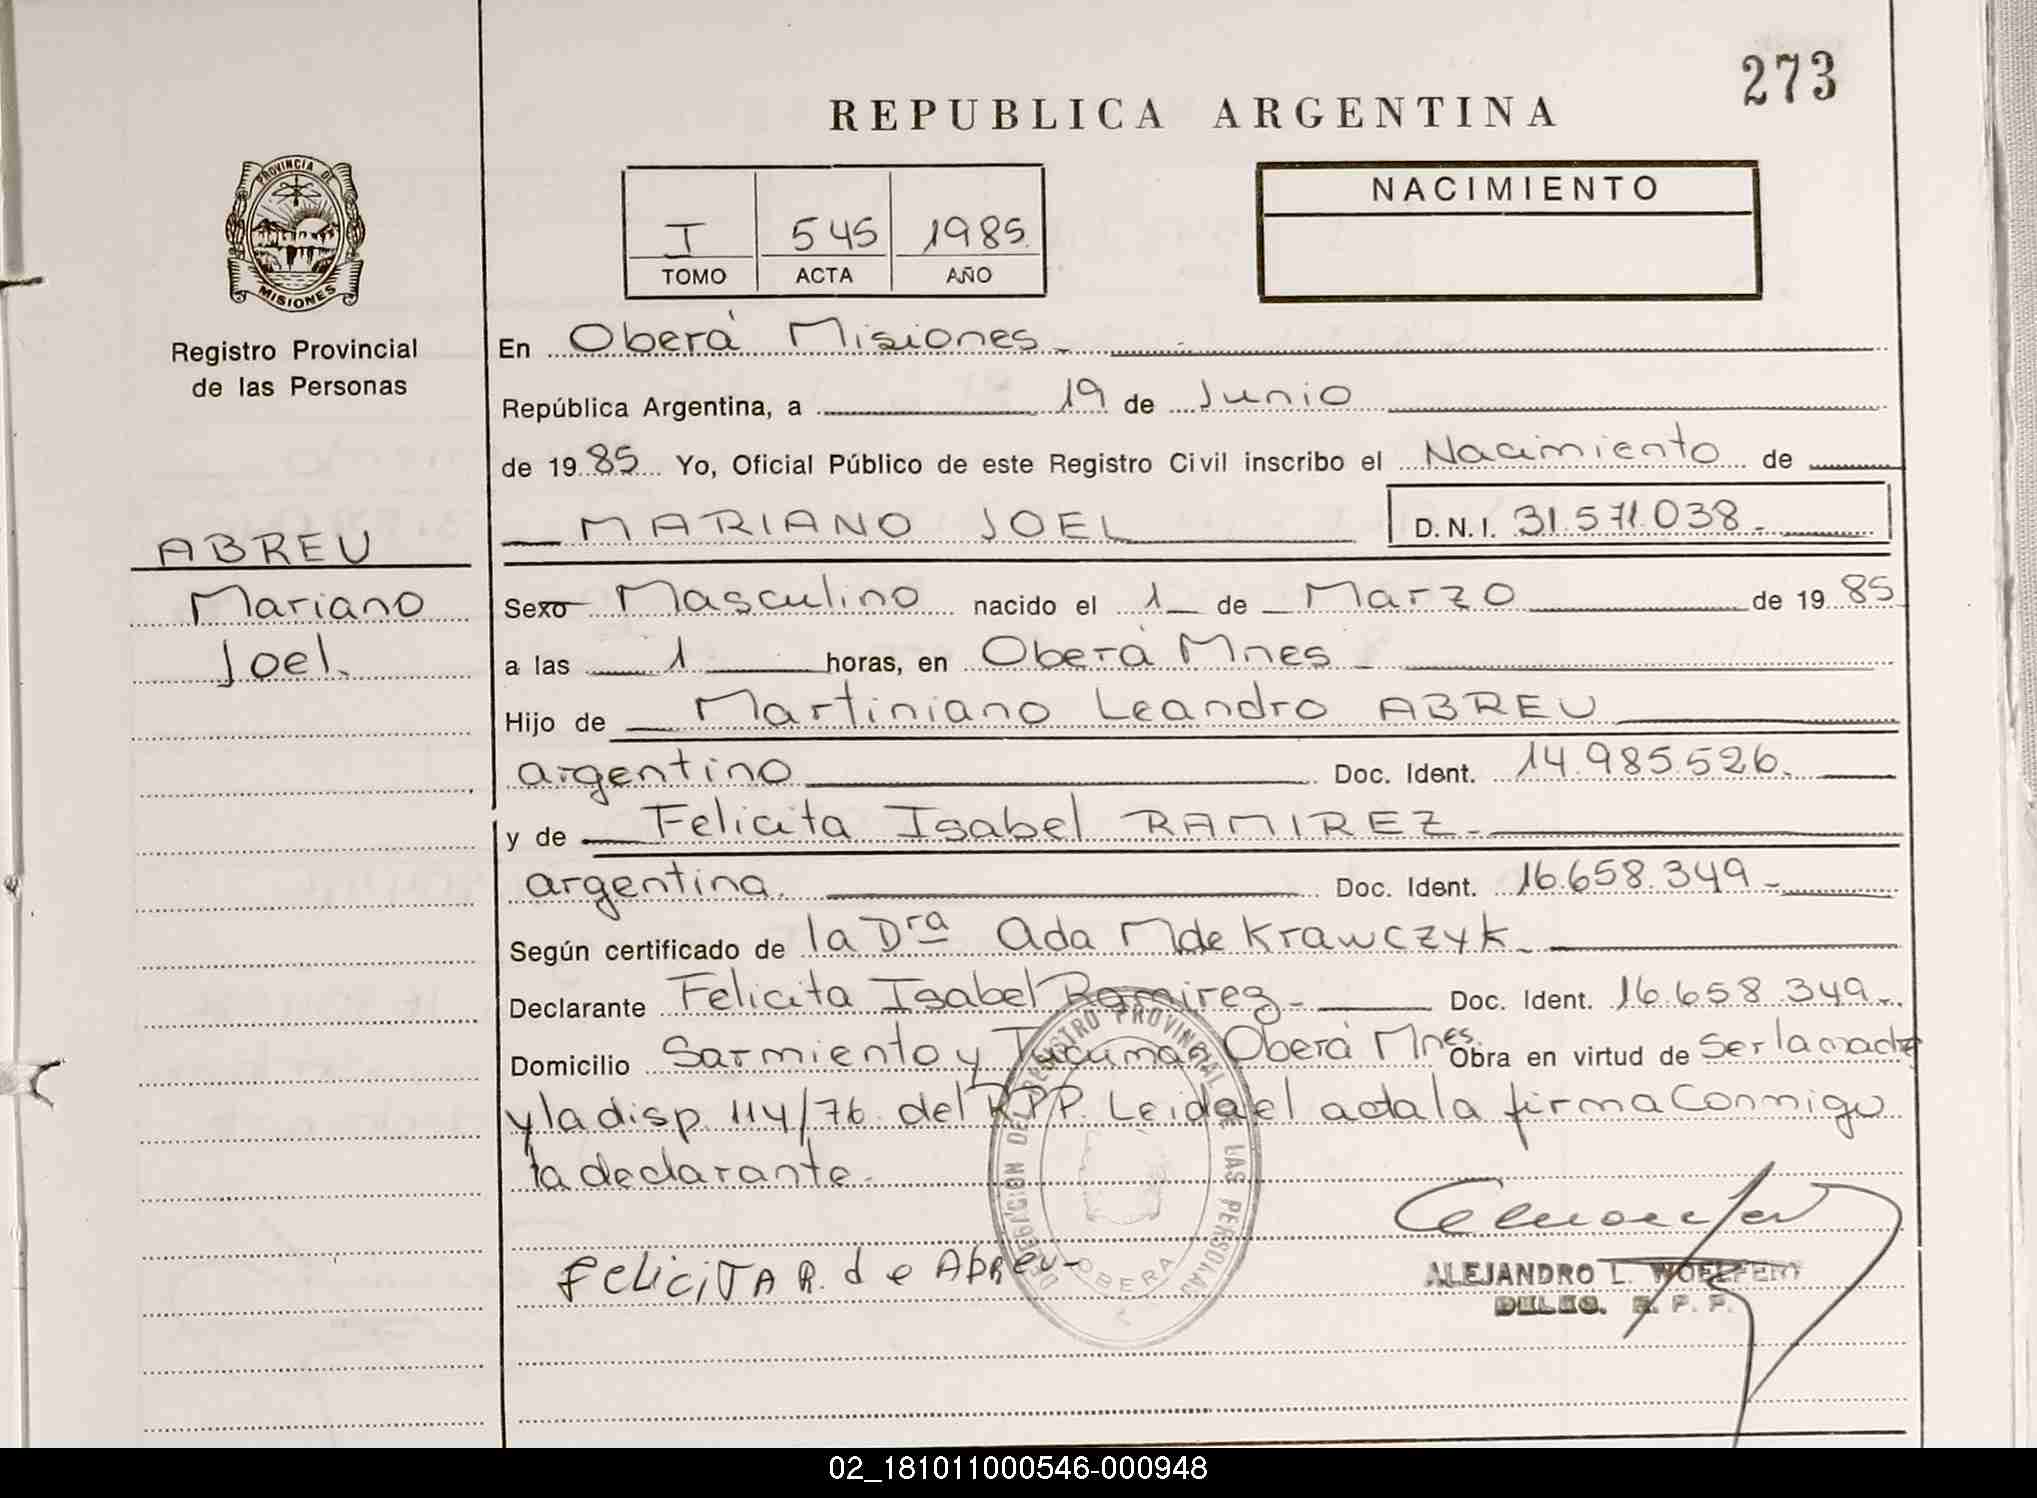 273
REPUBLICA ARGENTINA
PROVINCIA DE
MISIONES
Registro Provincial
de las Personas
ABREU
Mariano
Joel.
I 545 1985
TOMO ACTA AÑO
NACIMIENTO
En Oberá Misiones
República Argentina, a 19 de Junio
de 1985 Yo, Oficial Público de este Registro Civil inscribo el Nacimiento de
MARIANO JOEL D.N.I. 31.571.038
Sexo Masculino nacido el 1 de Marzo de 1985
a las 1 horas, en Oberá Mnes
Hijo de Martiniano Leandro ABREU
argentino Doc. Ident. 14.985.526.
y de Felicita Isabel RAMIREZ
argentina. Doc. Ident. 16.658.349
Según certificado de la Dra Ada M de Krawczyk
Declarante Felicita Isabel Ramirez Doc. Ident. 16.658.349
Domicilio Sarmiento y Tucuman Oberá Mnes. Obra en virtud de Ser la madre
y la disp. 114/76 del RPP. Leida el acta la firma Conmigo
la declarante.
FeliciTA R. de Abreu
DELEGACION DEL REGISTRO PROVINCIAL DE LAS PERSONAS
OBERA
ALEJANDRO L. WOELFERT
DELEG. R. P. P.
02_181011000546-000948